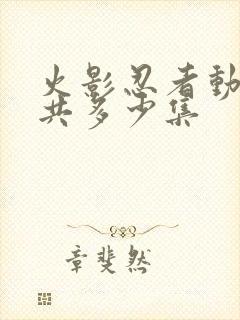 火影忍者動
共多少集
章斐然